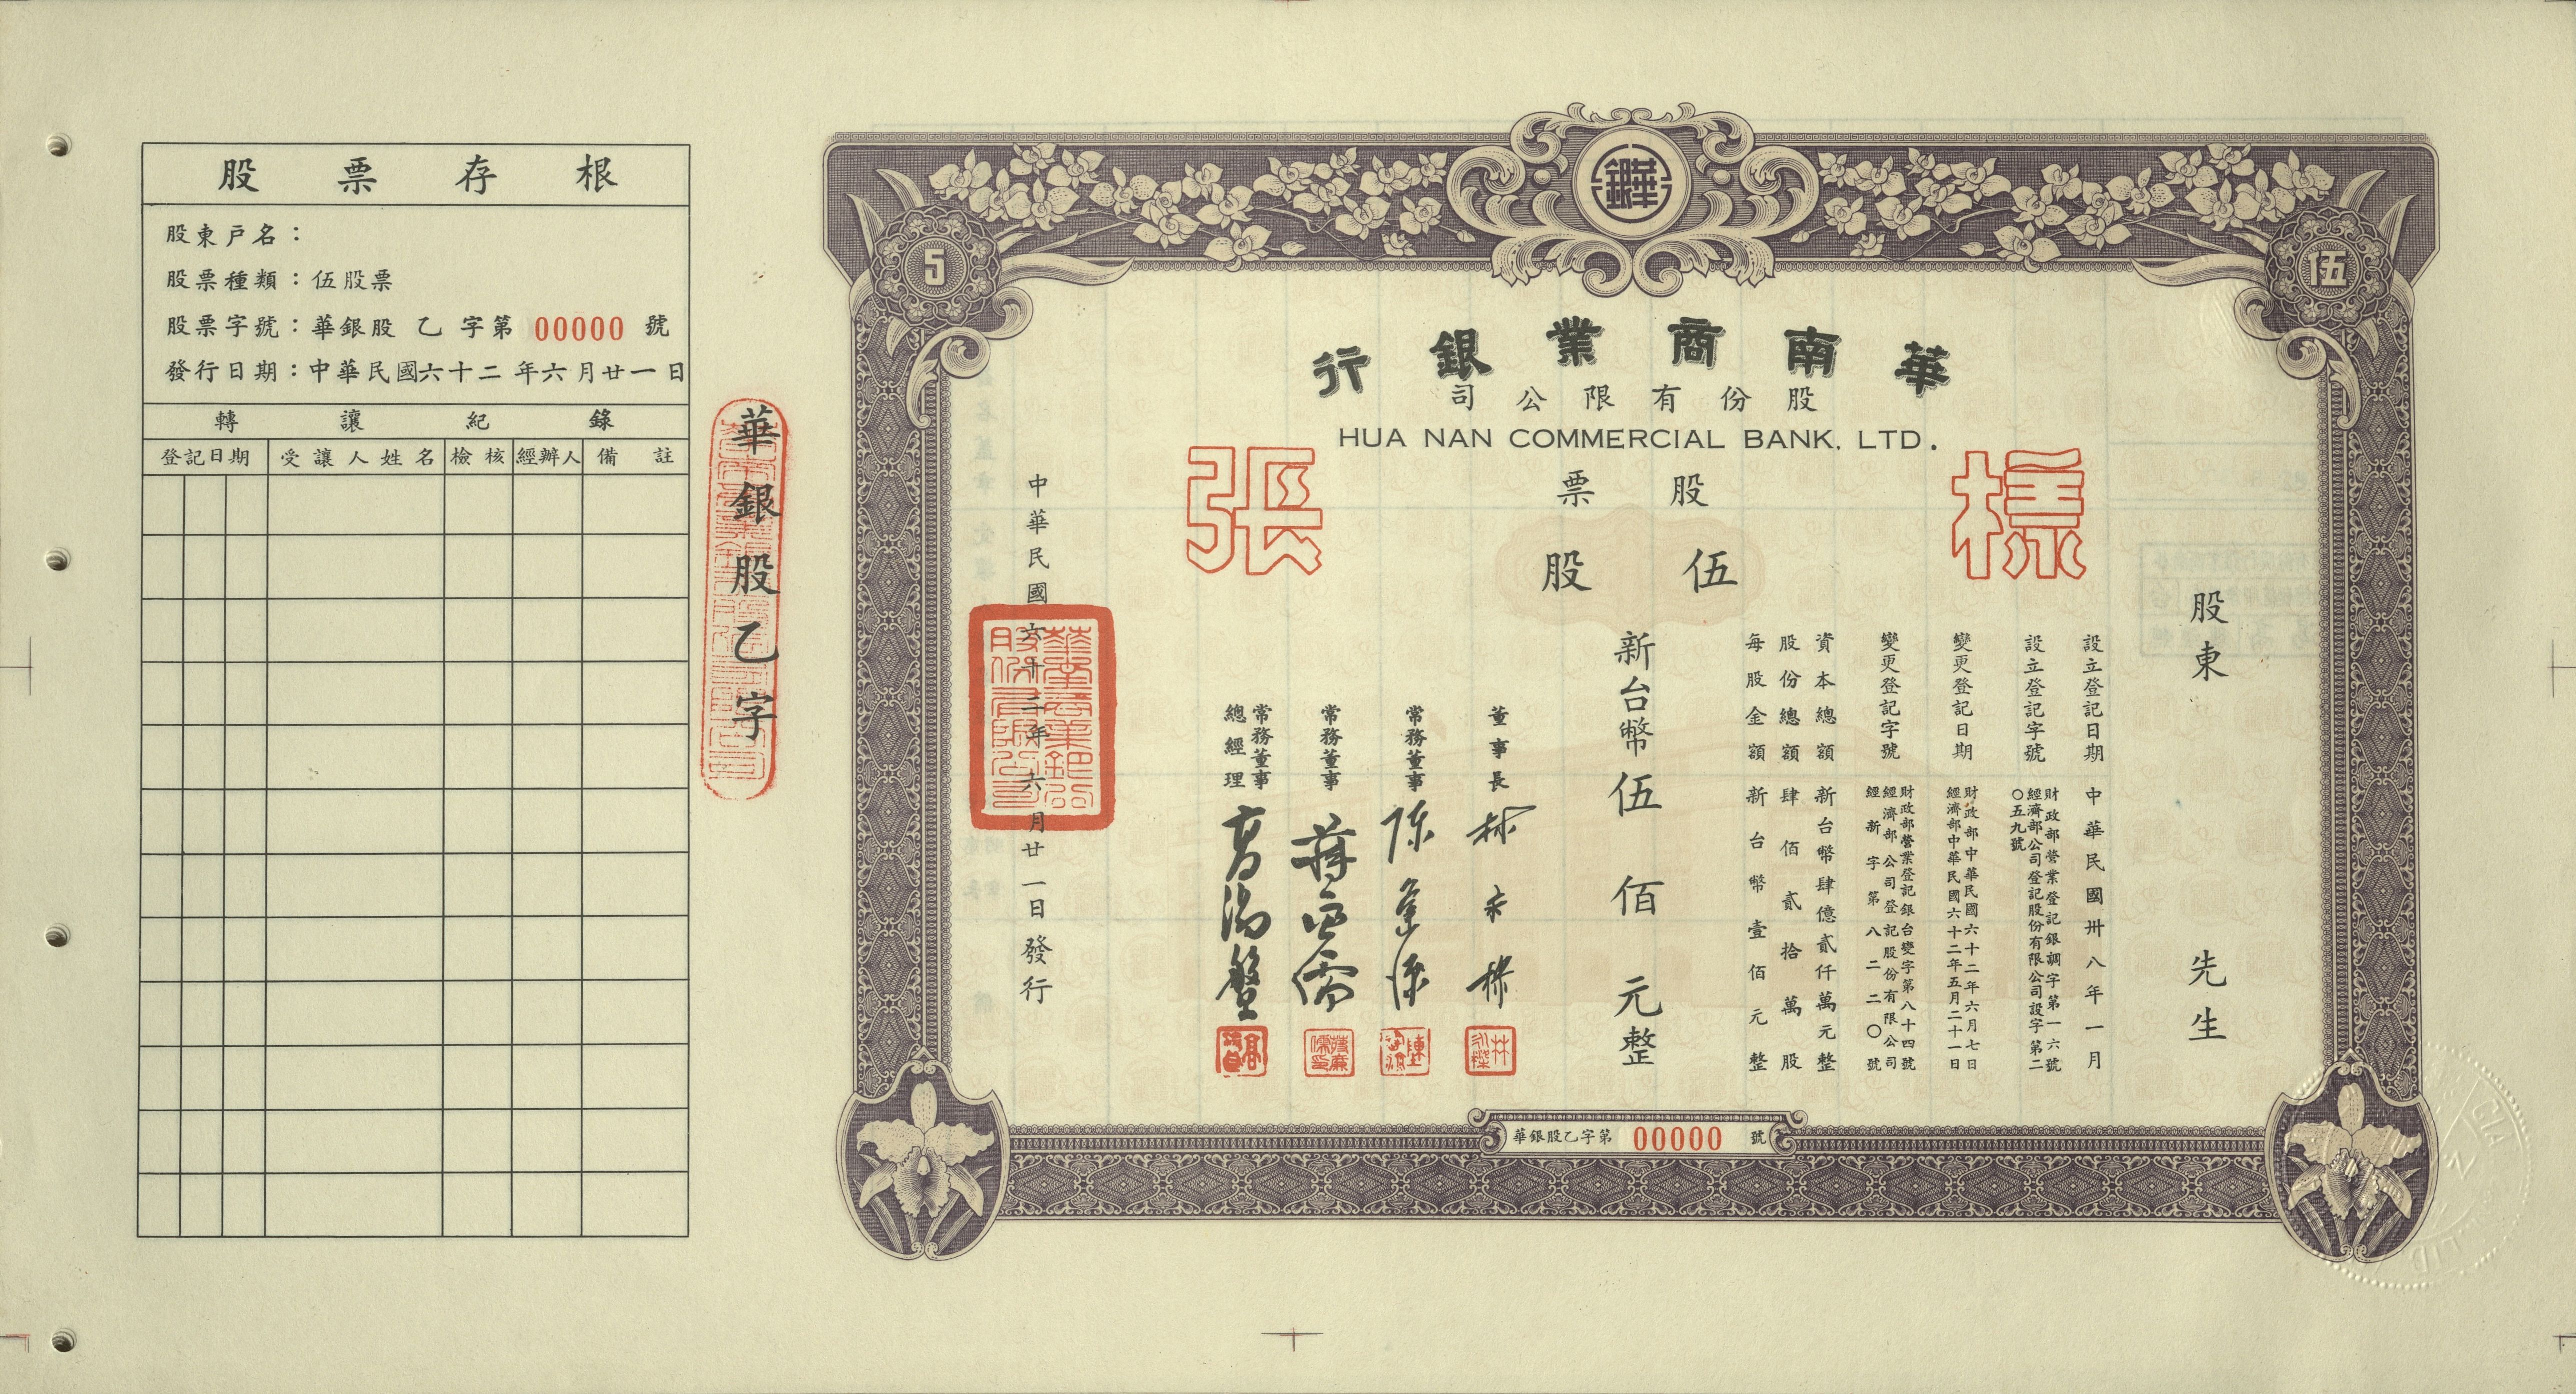 股票存根
股東戶名：
股票種類：伍股票
股票字號：華銀股 乙 字第 00000 號
發行日期：中華民國六十二年六月廿一日
轉讓紀錄
登記日期 受讓人姓名 檢核 經辦人 備註
華銀股乙字
華銀
5
伍
華南商業銀行
股份有限公司
HUA NAN COMMERCIAL BANK, LTD.
樣張
股票
伍股
股東 先生
設立登記日期 中華民國卅八年一月
設立登記字號 財政部營業登記銀調字第一六號
經濟部公司登記股份有限公司設字第二〇五九號
變更登記日期 財政部中華民國六十二年六月七日
經濟部中華民國六十二年五月二十一日
變更登記字號 財政部營業登記銀台變字第八十四號
經濟部公司登記股份有限公司
經新字第八二二〇號
資本總額 新台幣肆億貳仟萬元整
股份總額 肆佰貳拾萬股
每股金額 新台幣壹佰元整
新台幣伍佰元整
董事長
常務董事
常務董事
常務董事
總經理
中華民國六十二年六月廿一日發行
華銀股乙字第 00000 號